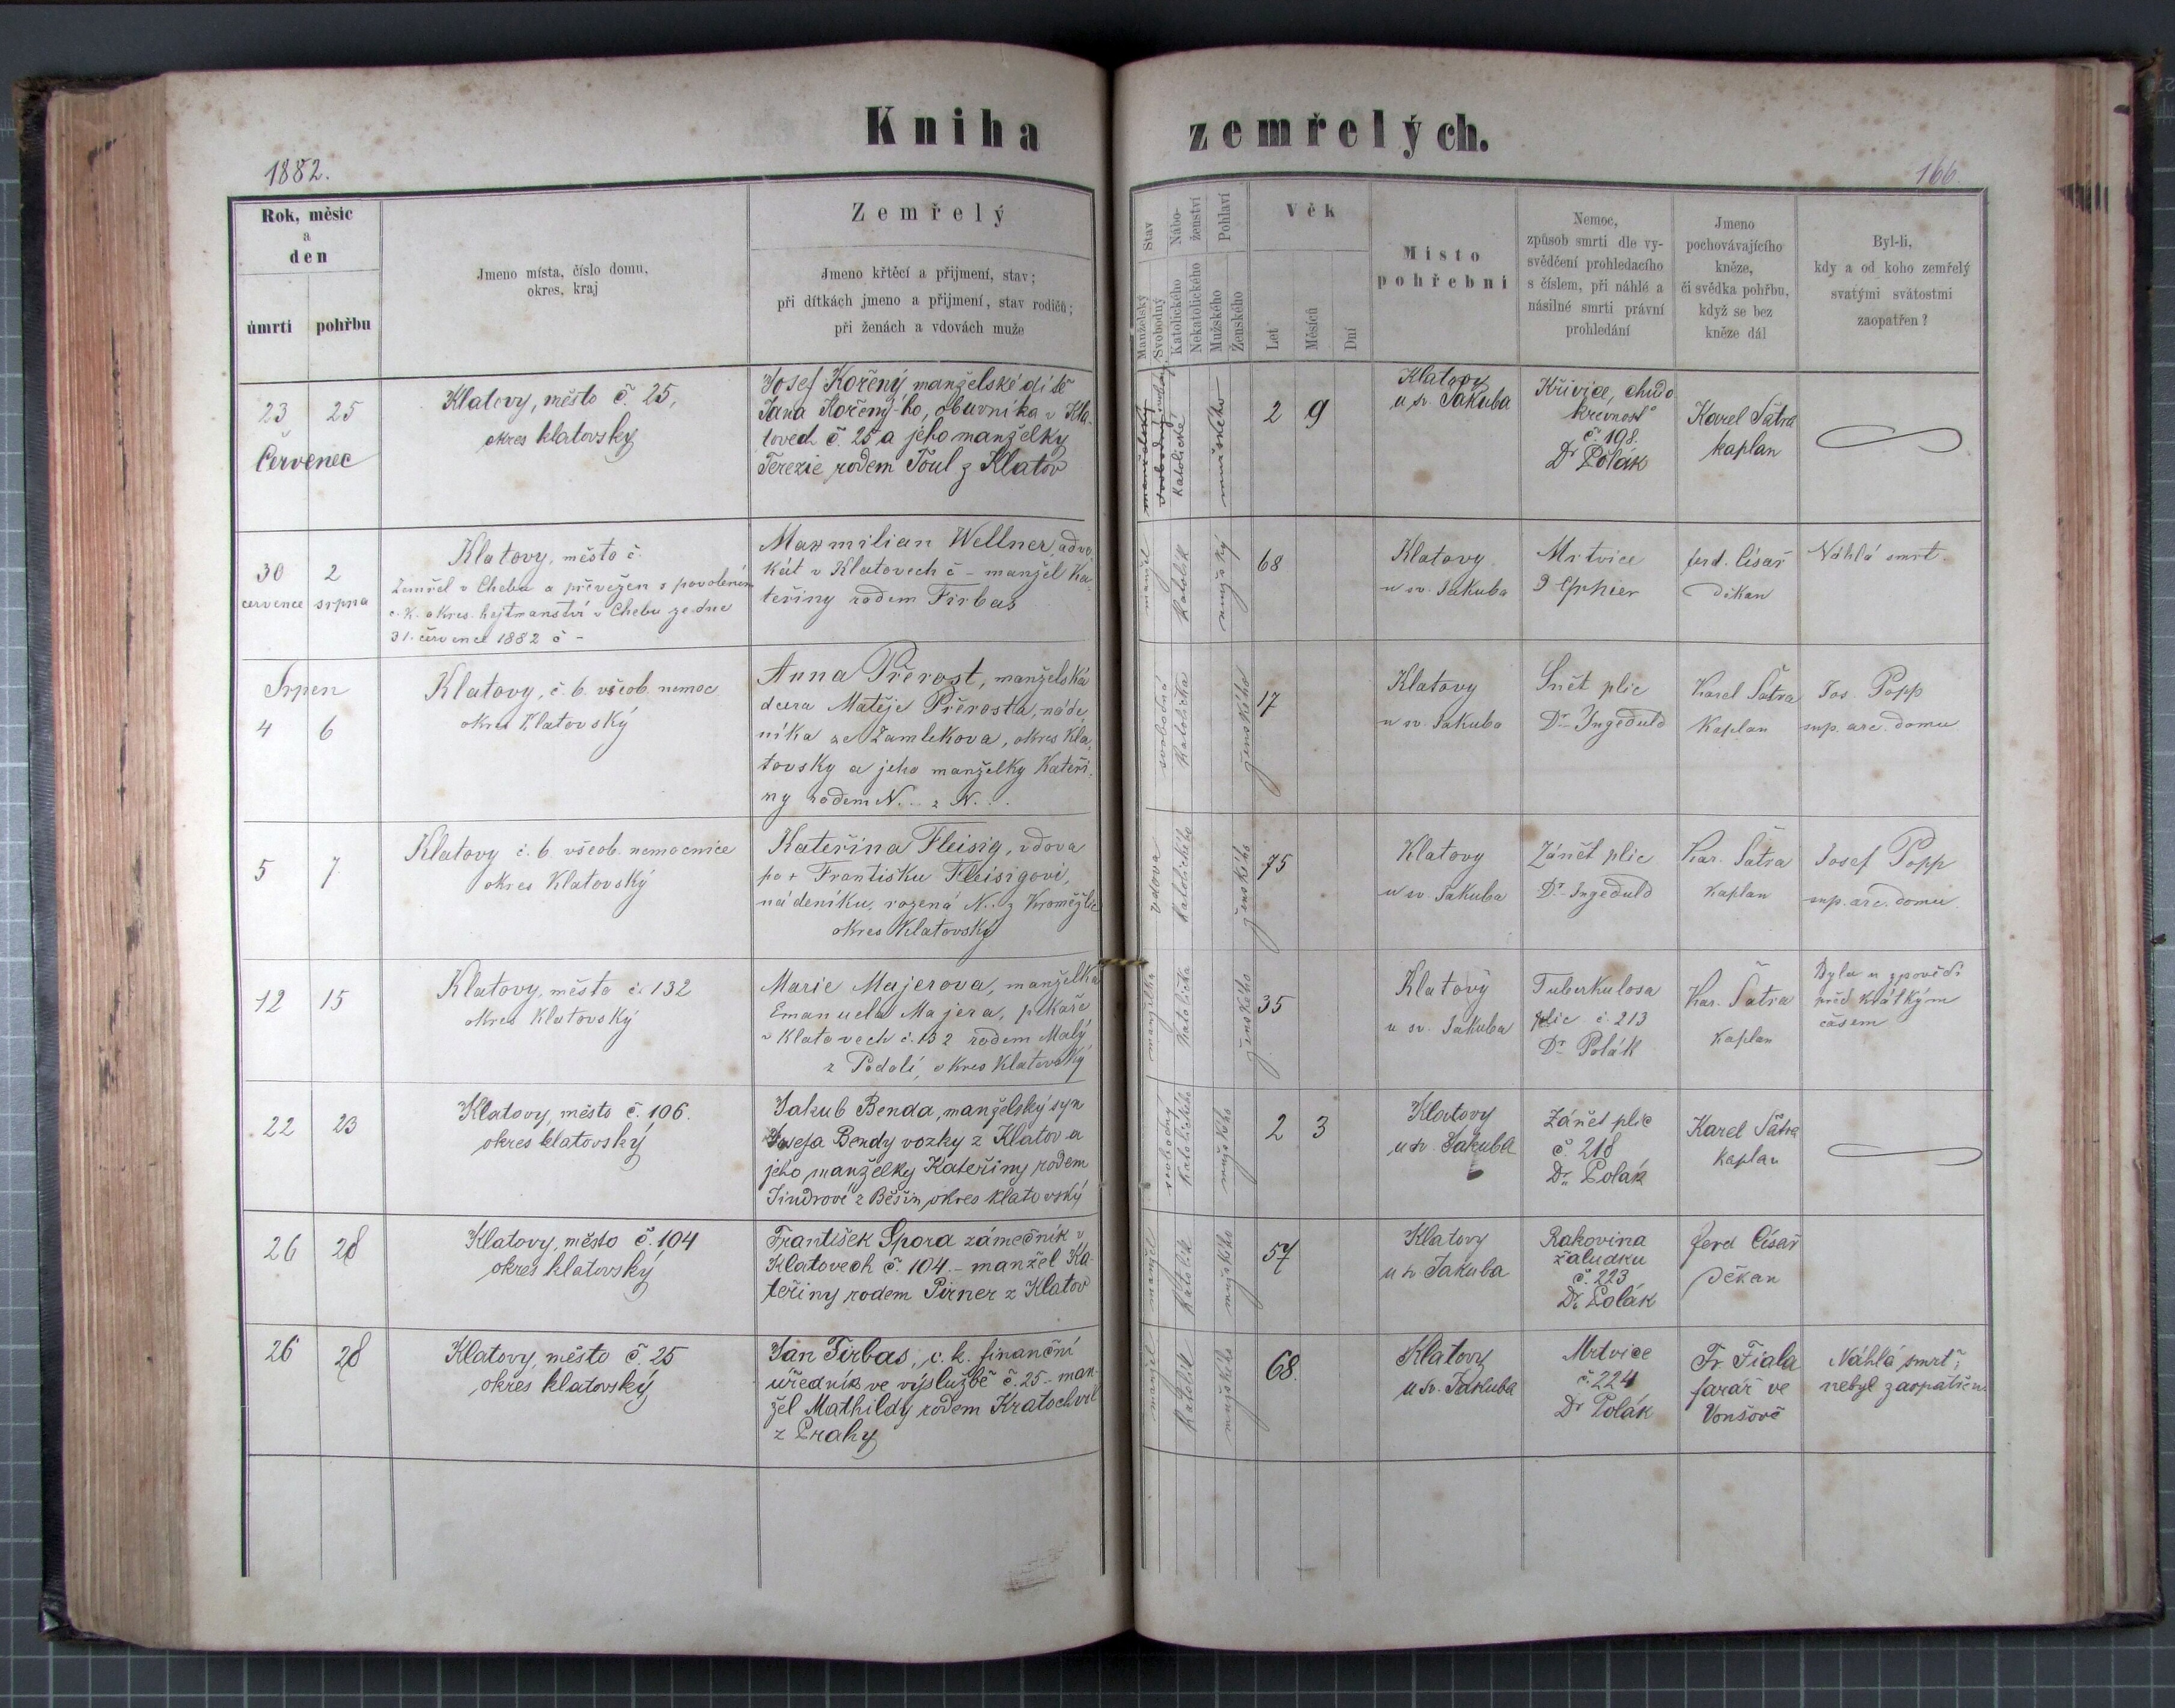 Kniha zemřelých.
1882.
166.
Rok, měsíc
a
den
úmrtí pohřbu
Jmeno místa, číslo domu,
okres, kraj
Zemřelý
Jmeno křtěcí a přijmení, stav;
při dítkách jmeno a přijmení, stav rodičů;
při ženách a vdovách muže
Stav
Manželský
Svobodný
Nábo-
ženství
Katolického
Nekatolického
Pohlaví
Mužského
Ženského
Věk
Let
Měsíců
Dní
Místo
pohřební
Nemoc,
způsob smrti dle vy-
svědčení prohledacího
s číslem, při náhlé a
násilné smrti právní
prohledání
Jmeno
pochovávajícího
kněze,
či svědka pohřbu,
když se bez
kněze dál
Byl-li,
kdy a od koho zemřelý
svatými svátostmi
zaopatřen?
23 25
Červenec
Klatovy, město č. 25,
okres klatovský
Josef Kořený manželské dítě
Jana Kořený-ho, obuvníka v Kla-
tovech č. 25 a jeho manželky
Terezie rodem Toul z Klatov
katolické
mužského
2 9
Klatovy
u sv. Jakuba
Křivice, chudo
krevnost
č. 198.
Dr Polák
Karel Šatra
kaplan
30 2
července srpna
Klatovy, město č.
Zemřel v Chebu a převežen s povolením
c. k. okres. hejtmanství v Chebu ze dne
31. července 1882 č –
Maxmilian Wellner, advo-
kát v Klatovech č – manžel Ka-
teřiny rodem Firbas
manžel
katolík
mužský
68
Klatovy
u sv. Jakuba
Mrtvice
Ferd. Císař
Děkan
Náhlá smrt.
Srpen
4 6
Klatovy, č. 6. všeob. nemoc
okres Klatovský
Anna Přerost, manželská
dcera Matěje Přerosta, náde-
níka ze Zamlekova, okres Kla-
tovsky a jeho manželky Kateři-
ny rodem N... z N...
svobodná
katolička
ženského
17
Klatovy
u sv. Jakuba
Snět plic
Dr Ingeduld
Karel Šatra
Kaplan
Jos. Popp
sup. arc. domu
5 7
Klatovy č. 6 všeob. nemocnice
okres Klatovský
Kateřina Fleisig, vdova
po + Františku Fleisigovi,
nádeníku, rozená N.. z Kroměžlic
okres Klatovský
vdova
katolického
ženského
75
Klatovy
u sv. Jakuba
Zánět plic
Dr Ingeduld
Kar. Šatra
Kaplan
Josef Popp
sup. arc. domu
12 15
Klatovy, město č. 132
okres Klatovský
Marie Majerova, manželka
Emanuela Majera, pekaře
v Klatovech č. 132 rodem Malý
z Podolí, okres Klatovský
manželka
katolička
ženského
35
Klatovy
u sv. Jakuba
Tuberkulosa
plic č. 213
Dr Polák
Kar. Šatra
Kaplan
Byla u zpovědi
před krátkým
časem
22 23
Klatovy, město č. 106.
okres klatovský
Jakub Benda, manželský syn
Josefa Bendy vozky z Klatov a
jeho manželky Kateřiny rodem
Jindrové z Běšin, okres klatovský
svobodný
katolického
mužského
2 3
Klatovy
u sv. Jakuba
Zánět plic
č. 218
Dr. Polák
Karel Šatra
kaplan
26 28
Klatovy, město č. 104
okres klatovský
František Spora zámečník v
Klatovech č. 104. – manžel Ka-
teřiny rodem Pirner z Klatov
manžel
katolík
mužského
57
Klatovy
u sv Jakuba
Rakovina
žaludku
č. 223
Dr. Polák
Ferd Císař
Děkan
26 28
Klatovy, město č. 25
okres klatovský
Jan Firbas, c. k. finanční
úředník ve výslužbě č. 25 – man-
žel Mathildy rodem Kratochvil
z Prahy
manžel
katolík
mužského
68.
Klatovy
u sv. Jakuba
Mrtvice
č. 224
Dr Polák
Fr. Fiala
farář ve
Náhlá smrt;
nebyl zaopatřen.